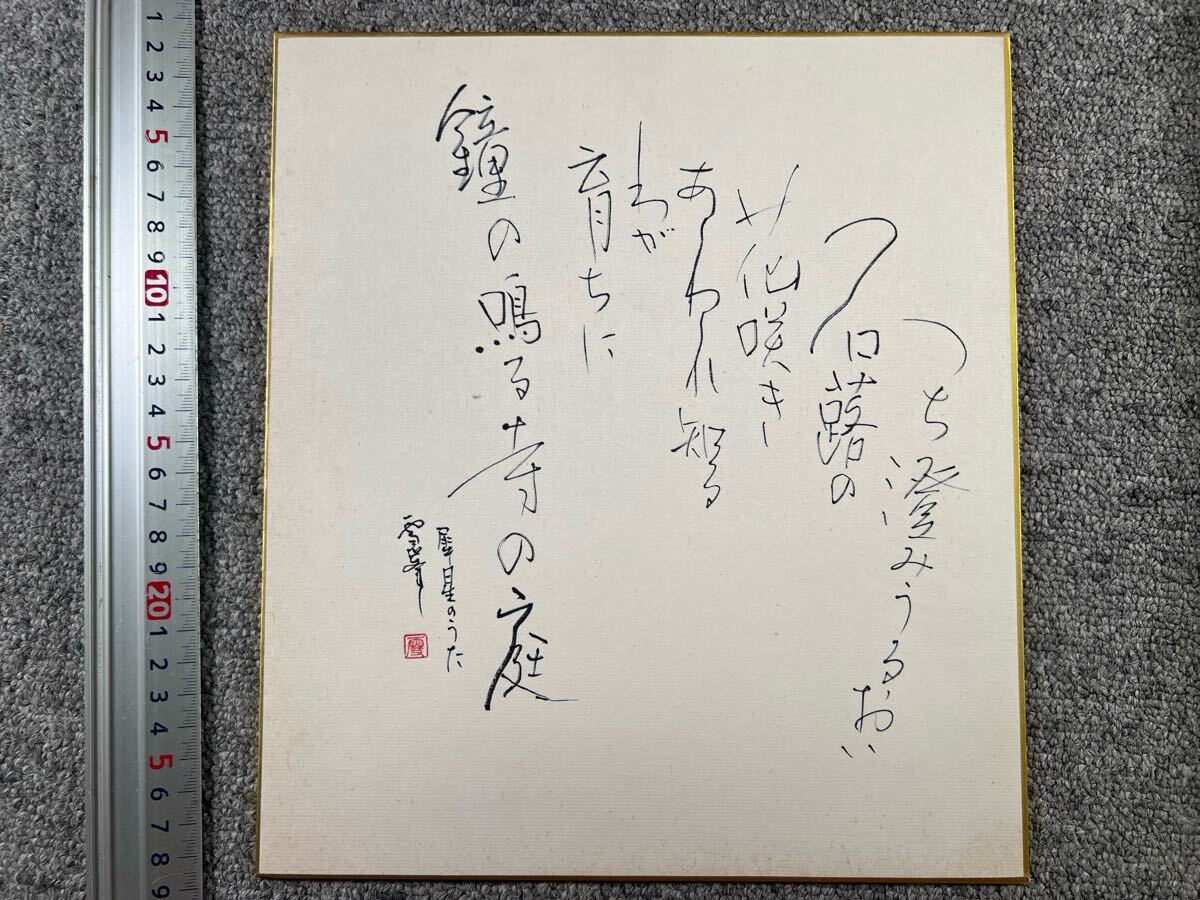 1 2 3 4 5 6 7 8 9 10 1 2 3 4 5 6 7 8 9 20 1 2 3 4 5 6 7 8 9
つち澄みうるおい
石蕗の
花咲き
あわれ知る
わが
育ちに
鐘の鳴る寺の庭
犀星のうた